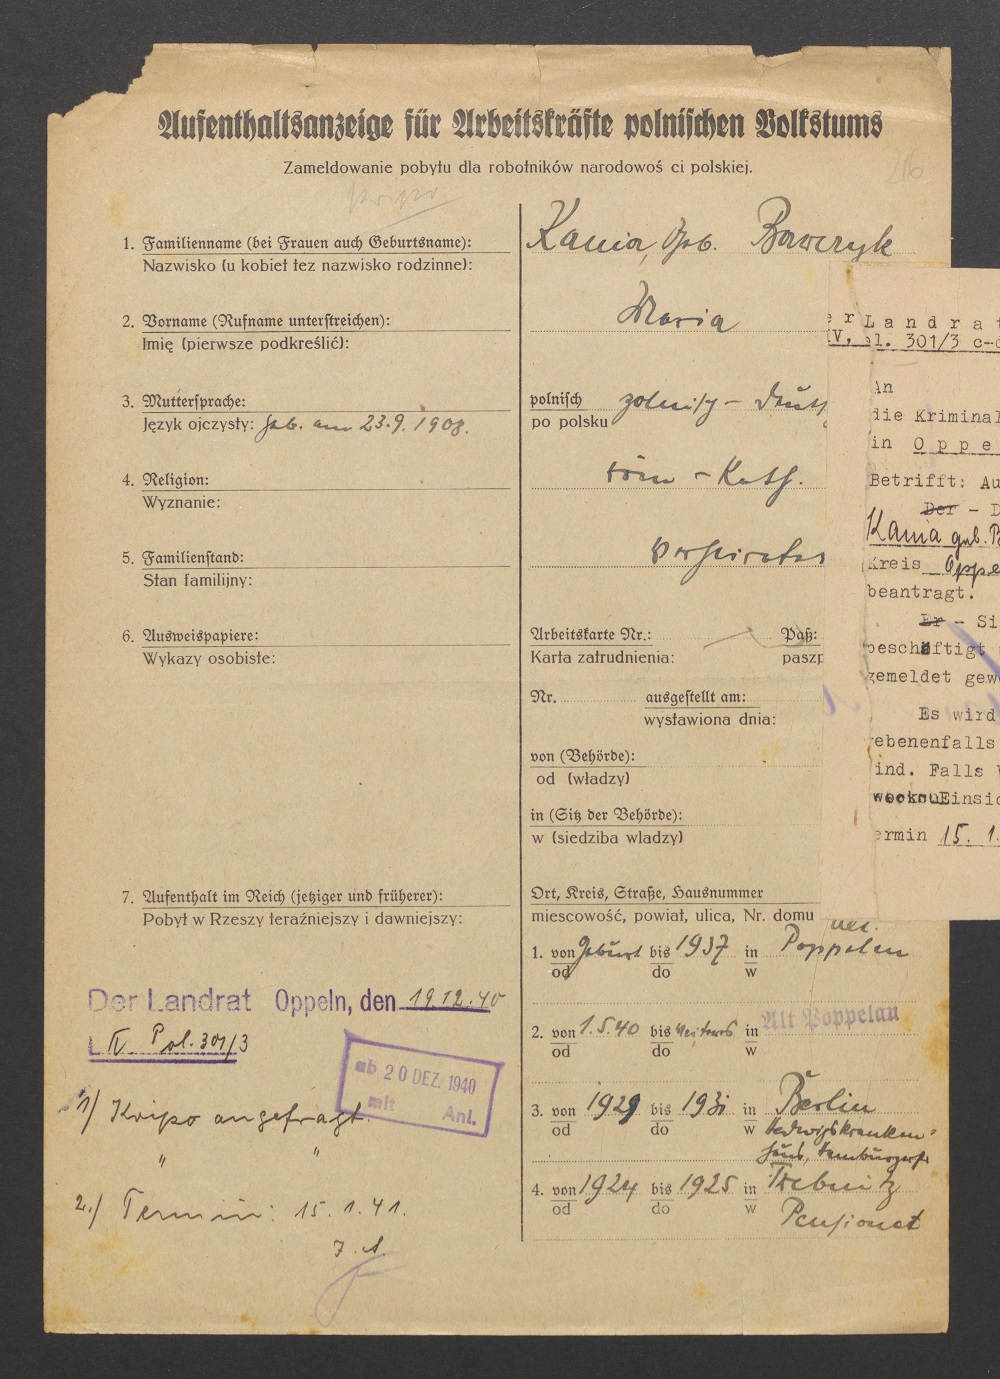 Aufenthaltsanzeige für Arbeitskräfte polnischen Volkstums
Zameldowanie pobytu dla robotników narodowoś ci polskiej.
216
Kripo
1. Familienname (bei Frauen auch Geburtsname):
Nazwisko (u kobiet tez nazwisko rodzinne):
Kania, geb. Bawezyk
2. Vorname (Rufname unterstreichen):
Imię (pierwsze podkreślić):
Maria
3. Muttersprache:
Język ojczysty: geb. am 23.9.1908.
polnisch
po polsku
polnisch - deutsch
4. Religion:
Wyznanie:
röm - kath.
5. Familienstand:
Stan familijny:
verheiratet
6. Ausweispapiere:
Wykazy osobiste:
Arbeitskarte Nr.: Paß:
Karta zatrudnienia: paszp
Nr. ausgestellt am:
wystawiona dnia:
von (Behörde):
od (władzy)
in (Sitz der Behörde):
w (siedziba wladzy)
7. Aufenthalt im Reich (jetziger und früherer):
Pobyt w Rzeszy teraźniejszy i dawniejszy:
Ort, Kreis, Straße, Hausnummer
miescowość, powiat, ulica, Nr. domu
1. von Geburt bis 1937 in Poppelau
od do w
2. von 1.5.40 bis weiteres in Alt Poppelau
od do w
3. von 1929 bis 1931 in Berlin
od do w Hedwigskranken-
haus, Hamburgerstr
4. von 1924 bis 1925 in Trebnitz
od do w Pensionat
Der Landrat Oppeln, den 19.12.40
L IV Pol. 301/3
ab 20 DEZ. 1940
mit Anl.
1) Kripo angefragt.
" "
2.) Termin: 15.1.41.
J.A.
er Landrat
IV, ol. 301/3 c-
An
die Kriminal
in Oppe
Betrifft: Au
Der - D
Kania geb. B
Kreis Oppe
beantragt.
Er - Si
beschäftigt
gemeldet gew
Es wird
ebenenfalls
ind. Falls
Einsic
ermin 15. 1.